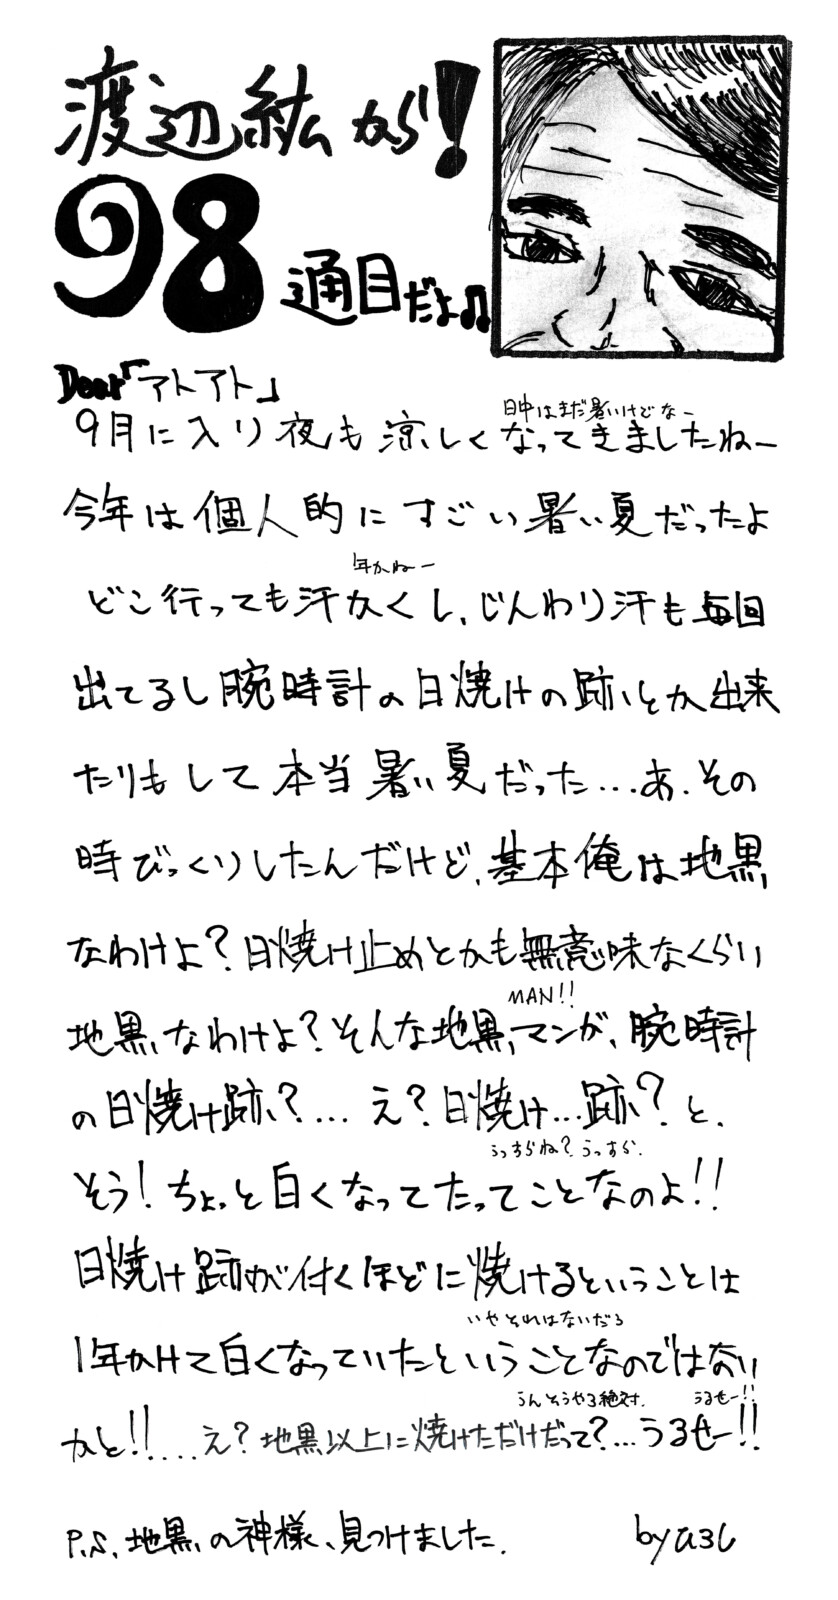 渡辺紘が!
98
通目だよ♫
Dear「アトアト」
日中はまだ暑いけどなー
9月に入り夜も涼しくなってきましたねー
今年は個人的にすごい暑い夏だったよ
年かねー
どこ行っても汗かくし、じんわり汗も毎回
出てるし腕時計の日焼けの跡とか出来
たりもして本当暑い夏だった...あ、その
時びっくりしたんだけど、基本俺は地黒
なわけよ?日焼け止めとかも無意味なくらい
MAN!!
地黒なわけよ?そんな地黒マンが、腕時計
の日焼け跡?...え?日焼け...跡?と、
うっすらね?うっすら.
そう!ちょっと白くなってたってことなのよ!!
日焼け跡が付くほどに焼けるということは
いやそれはないだろ
1年かけて白くなっていたということなのではない
うんそうやろ絶対. うるせー!!
かと!!....え?地黒以上に焼けただけだって?...うるせー!!
P.S.地黒の神様、見つけました. by ひろし